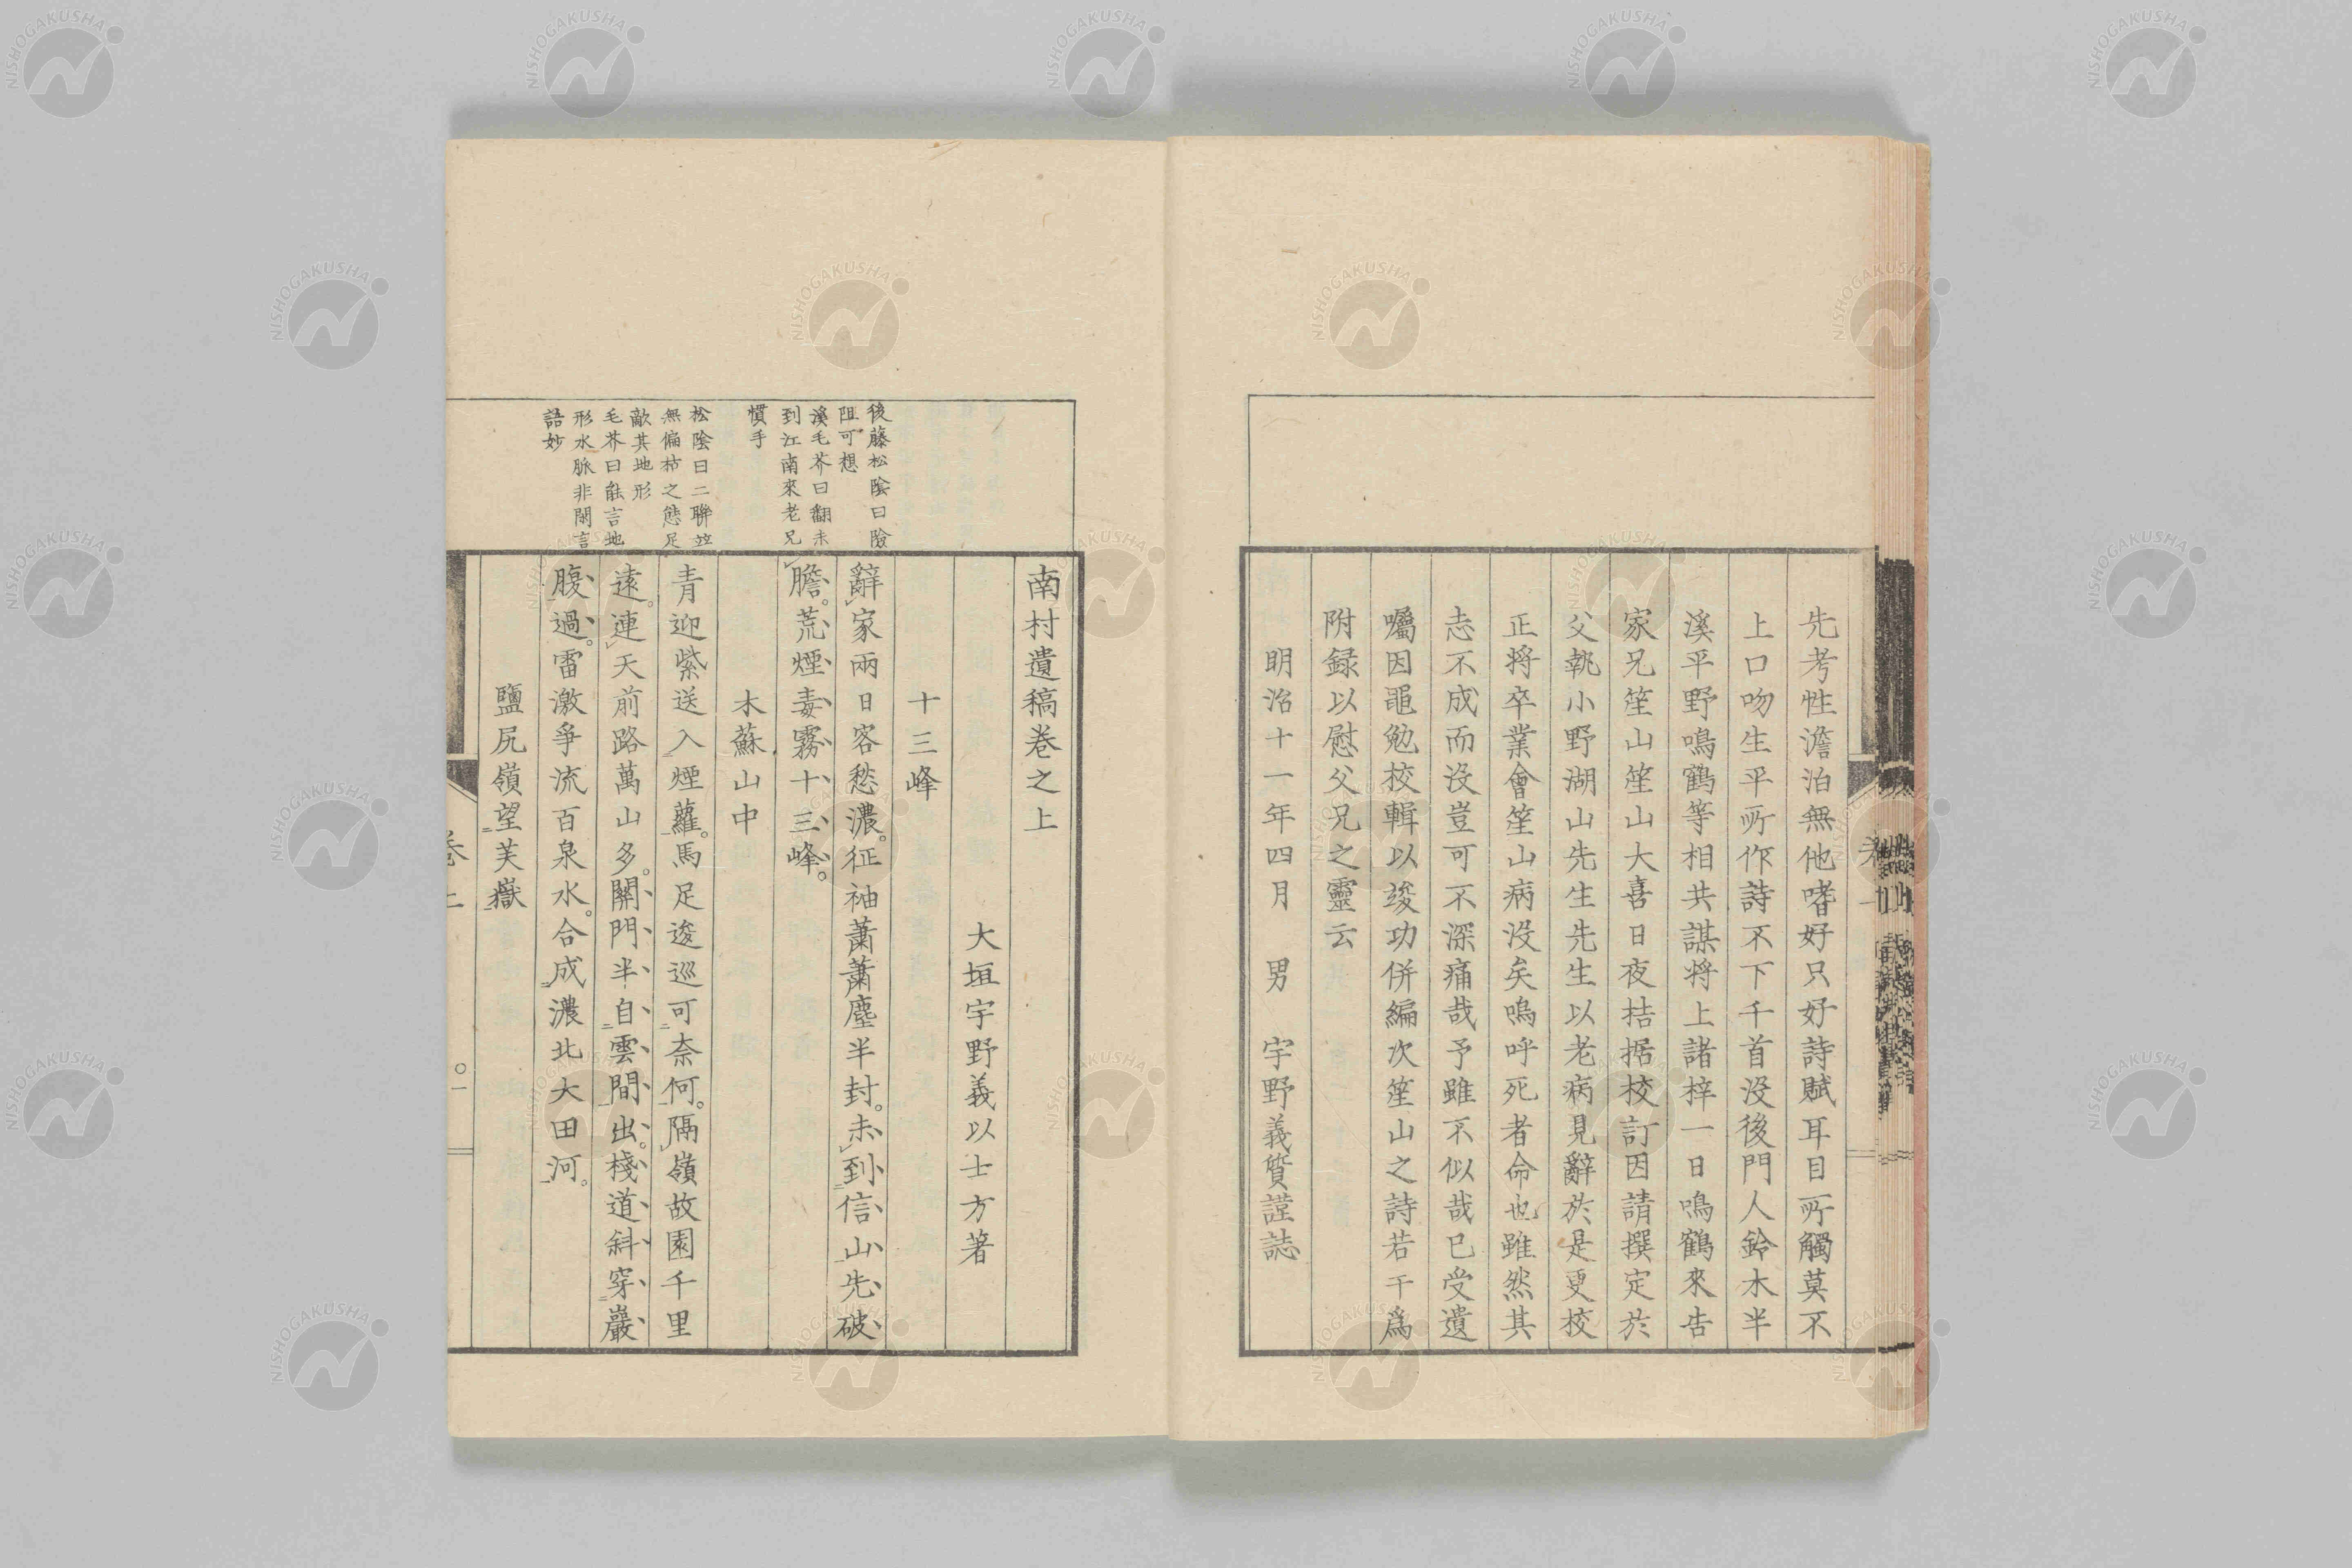 先考性澹泊無他嗜好只好詩賦耳目所觸莫不
上口吻生平所作詩不下千首沒後門人鈴木半
溪平野鳴鶴等相共謀將上諸梓一日鳴鶴來告
家兄笙山笙山大喜日夜拮据校訂因請撰定於
父執小野湖山先生先生以老病見辭於是更校
正將卒業會笙山病沒矣嗚呼死者命也雖然其
志不成而沒豈可不深痛哉予雖不似哉已受遺
囑因黽勉校輯以竣功併編次笙山之詩若干爲
附録以慰父兄之靈云
明治十一年四月 男 宇野義質謹誌
南村遺稿卷之上
大垣宇野義以士方著
十三峰
後藤松陰曰險
阻可想
溪毛芥曰翻未
到江南來老兄
慣手
辭家兩日客愁濃。征袖蕭蕭塵半封。未到信山先破
膽。荒煙毒霧十三峰。
木蘇山中
松陰曰二聯竝
無偏枯之態足
敵其地形
毛芥曰能言地
形水脈非閑言
語妙
青迎紫送入煙蘿。馬足逡巡可奈何。隔嶺故園千里
遠。連天前路萬山多。關門半自雲間出。棧道斜穿巖
腹過。雷激爭流百泉水。合成濃北大田河。
鹽尻嶺望芙嶽
卷上
〇一
NISHOGAKUSHA